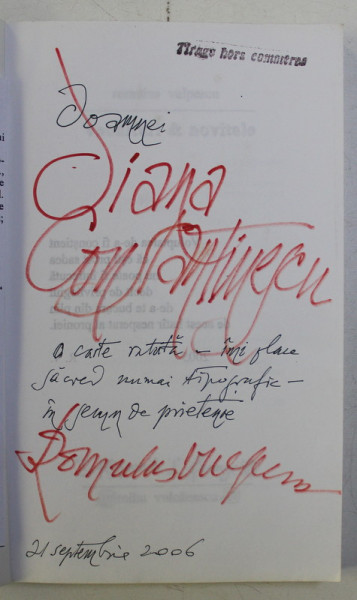 Tirage hors commerce
Doamnei
Diana
Constantinescu
O carte ratată – îmi place
să cred numai tipografic –
în semn de prietenie
Romulus Vulpescu
21 septembrie 2006